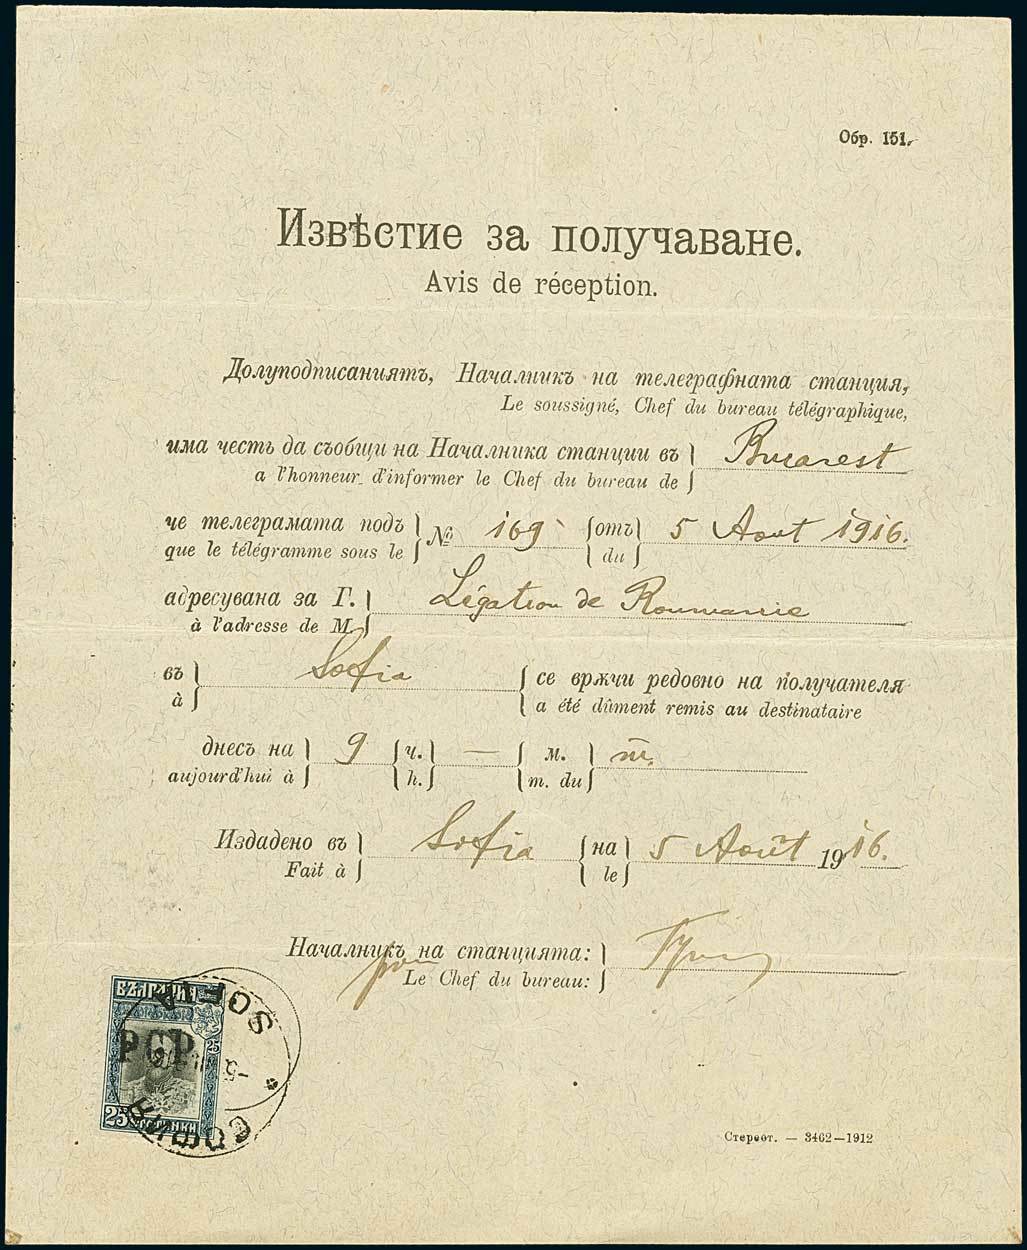 Обр. 151.
Извѣстие за получаване.
Avis de réception.
Долуподписаниятъ, Началникъ на телеграфната станция,
Le soussigné, Chef du bureau télégraphique,
има честь да съобщи на Началника станции въ Bucarest
a l'honneur d'informer le Chef du bureau de
че телеграмата подъ № 169 отъ 5 Aout 1916.
que le télégramme sous le du
адресувана за Г. Légation de Roumanie
à l'adresse de M.
въ Sofia се врѫчи редовно на получателя
à a été dûment remis au destinataire
днесъ на 9 ч. — м. m.
aujourd'hui à h. m. du
Издадено въ Sofia на 5 Août 1916.
Fait à le
Началникъ на станцията:
pour Le Chef du bureau:
БЪЛГАРИЯ
25
РСР
25 СТОТИНКИ
SOFIA
СОФИЯ
Стереот. — 3462—1912